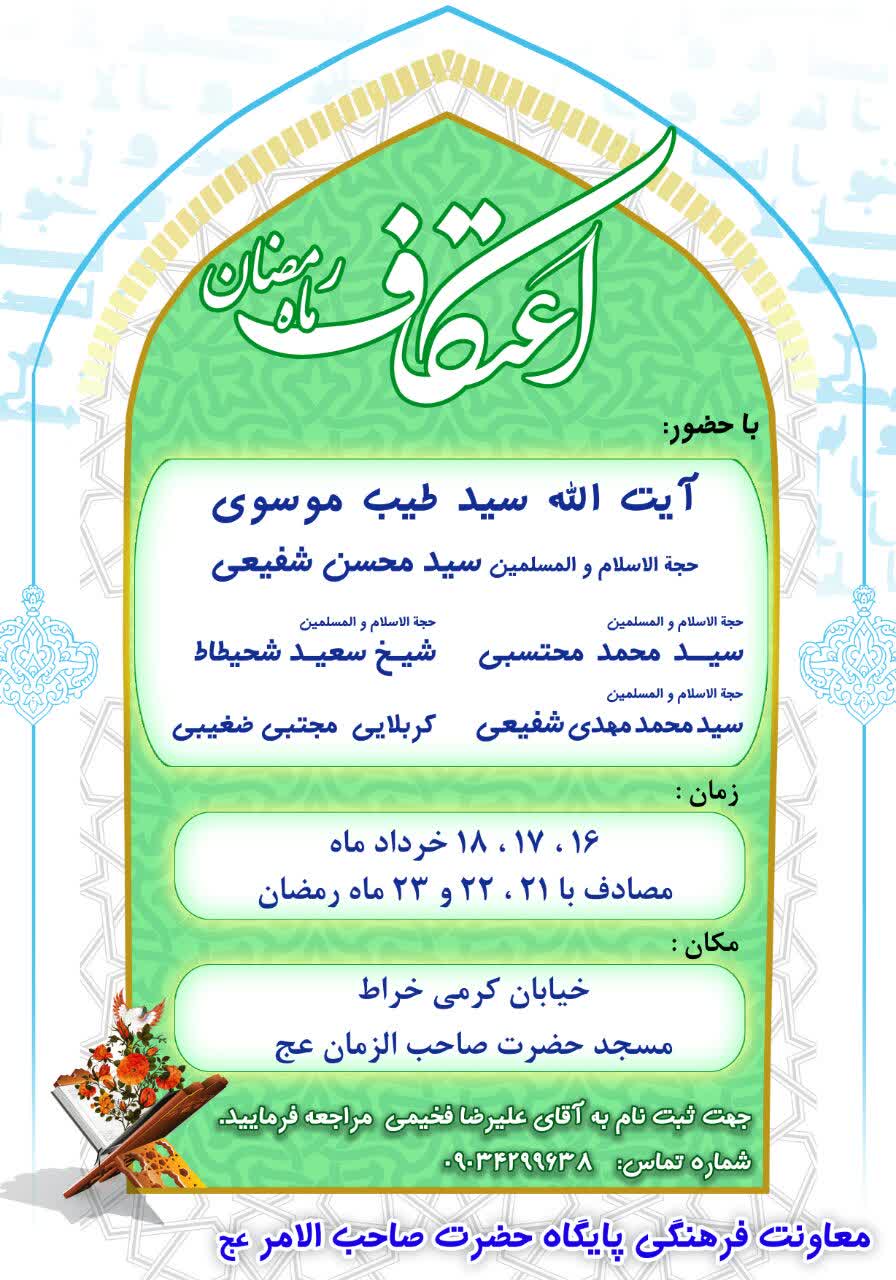 اعتکاف
ماه رمضان
با حضور:
آیت الله سید طیب موسوی
حجة الاسلام و المسلمین سید محسن شفیعی
حجة الاسلام و المسلمین
سیـــد محمد محتسبی
حجة الاسلام و المسلمین
شیـخ سعیـد شحیطاط
حجة الاسلام و المسلمین
سید محمد مهدی شفیعی
کربلایی مجتبی ضغیبی
زمان :
۱۶ ، ۱۷ ، ۱۸ خرداد ماه
مصادف با ۲۱ ، ۲۲ و ۲۳ ماه رمضان
مکان :
خیابان کرمی خراط
مسجد حضرت صاحب الزمان عج
جهت ثبت نام به آقای علیرضا فخیمی مراجعه فرمایید.
شماره تماس: ۰۹۰۳۴۲۹۹۶۳۸
معاونت فرهنگی پایگاه حضرت صاحب الامر عج